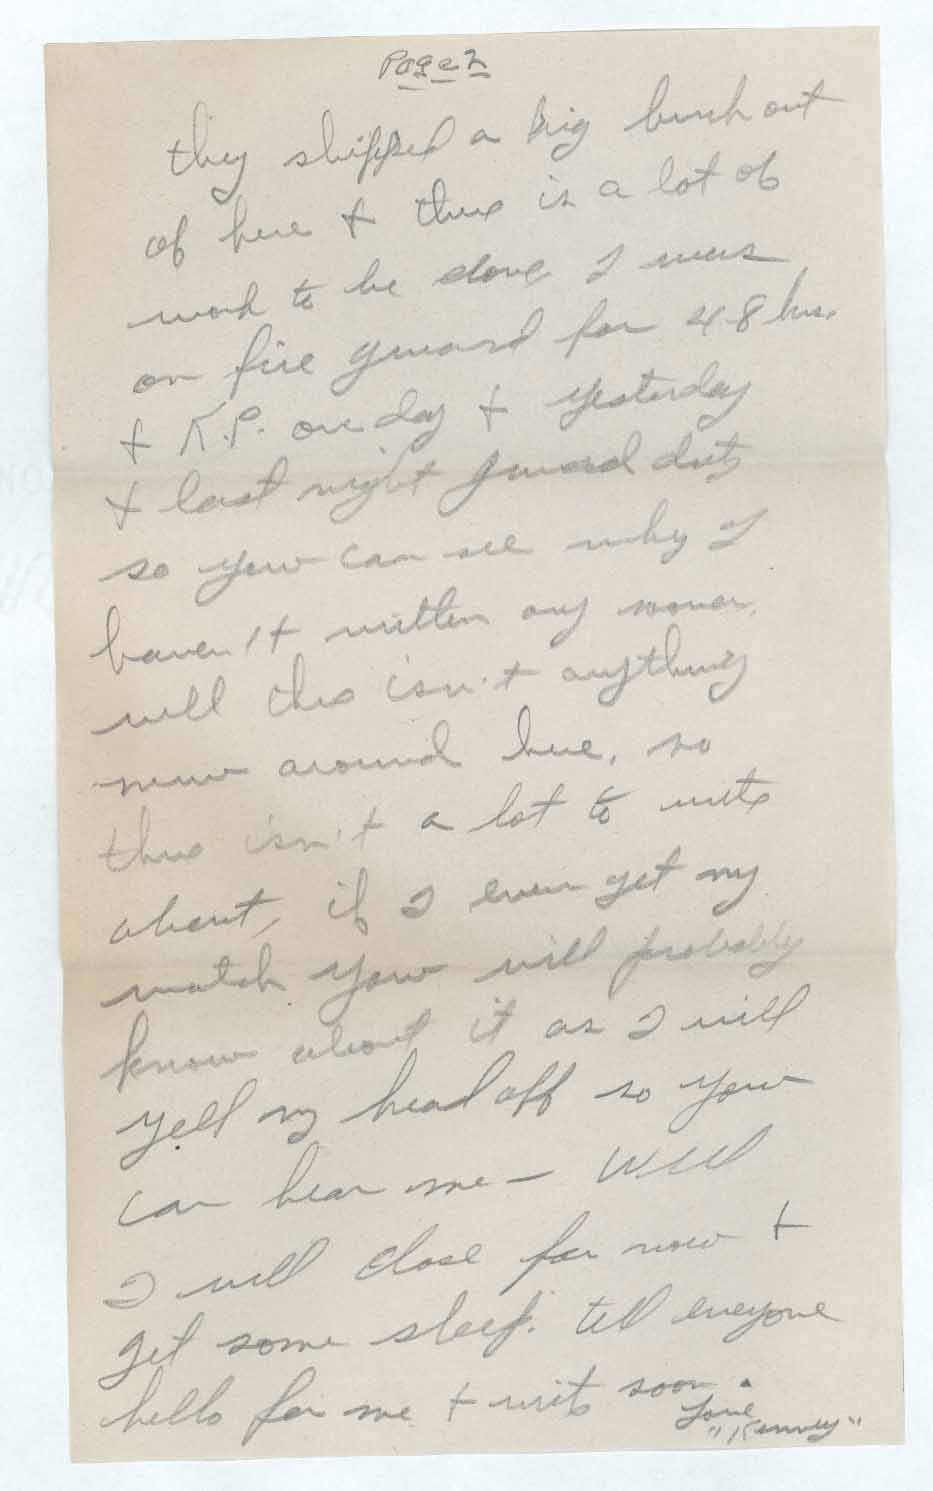 Page 2
they shipped a big bunch out
of here + there is a lot of
work to be done I was
on fire guard for 48 hrs.
+ K.P. one day + yesterday
+ last night guard duty
so you can see why I
haven't written any sooner.
well there isn't anything
new around here, so
there isn't a lot to write
about, if I ever get my
watch you will probably
know about it as I will
yell my head off so you
can hear me — Well
I will close for now +
get some sleep. tell everyone
hello for me + write soon.
Love
"Kenney"